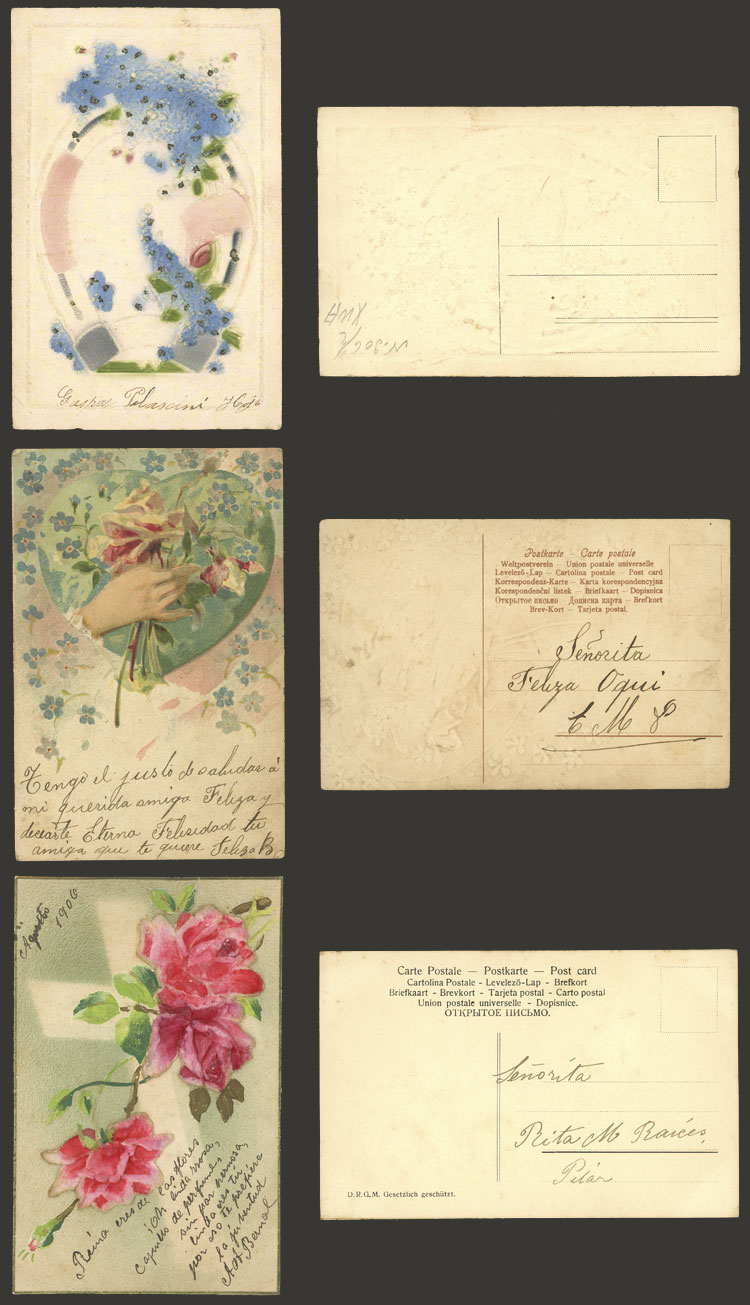 Gaspar Pelascini
Postkarte – Carte postale
Weltpostverein – Union postale universelle
Levelező-Lap – Cartolina postale – Post card
Korrespondenz-Karte – Karta korespondencyjna
Korespondenční lístek – Briefkaart – Dopisnica
Открытое письмо – Дописна карта – Brefkort
Brev-Kort – Tarjeta postal.
Señorita
Feliza Oqui
E M P
Tengo el justo de saludar á
mi querida amiga Feliza y
decearte Eterna Felisidad tu
amiga que te quiere Feliza B
Agosto 1906
Carte Postale — Postkarte — Post card
Cartolina Postale - Levelező-Lap - Brefkort
Briefkaart - Brevkort - Tarjeta postal - Carto postal
Union postale universelle - Dopisnice.
ОТКРЫТОЕ ПИСЬМО.
Señorita
Rita M Raices
Pilár
D.R.G.M. Gesetzlich geschützt.
Reina eres de las flores
¡Oh linda rosa,
capullo de perfumes
sin par hermosa,
linda eres tu
por eso te prefiere
la juventud
Bernal